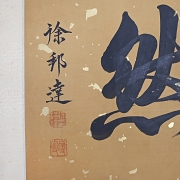 然
徐邦達